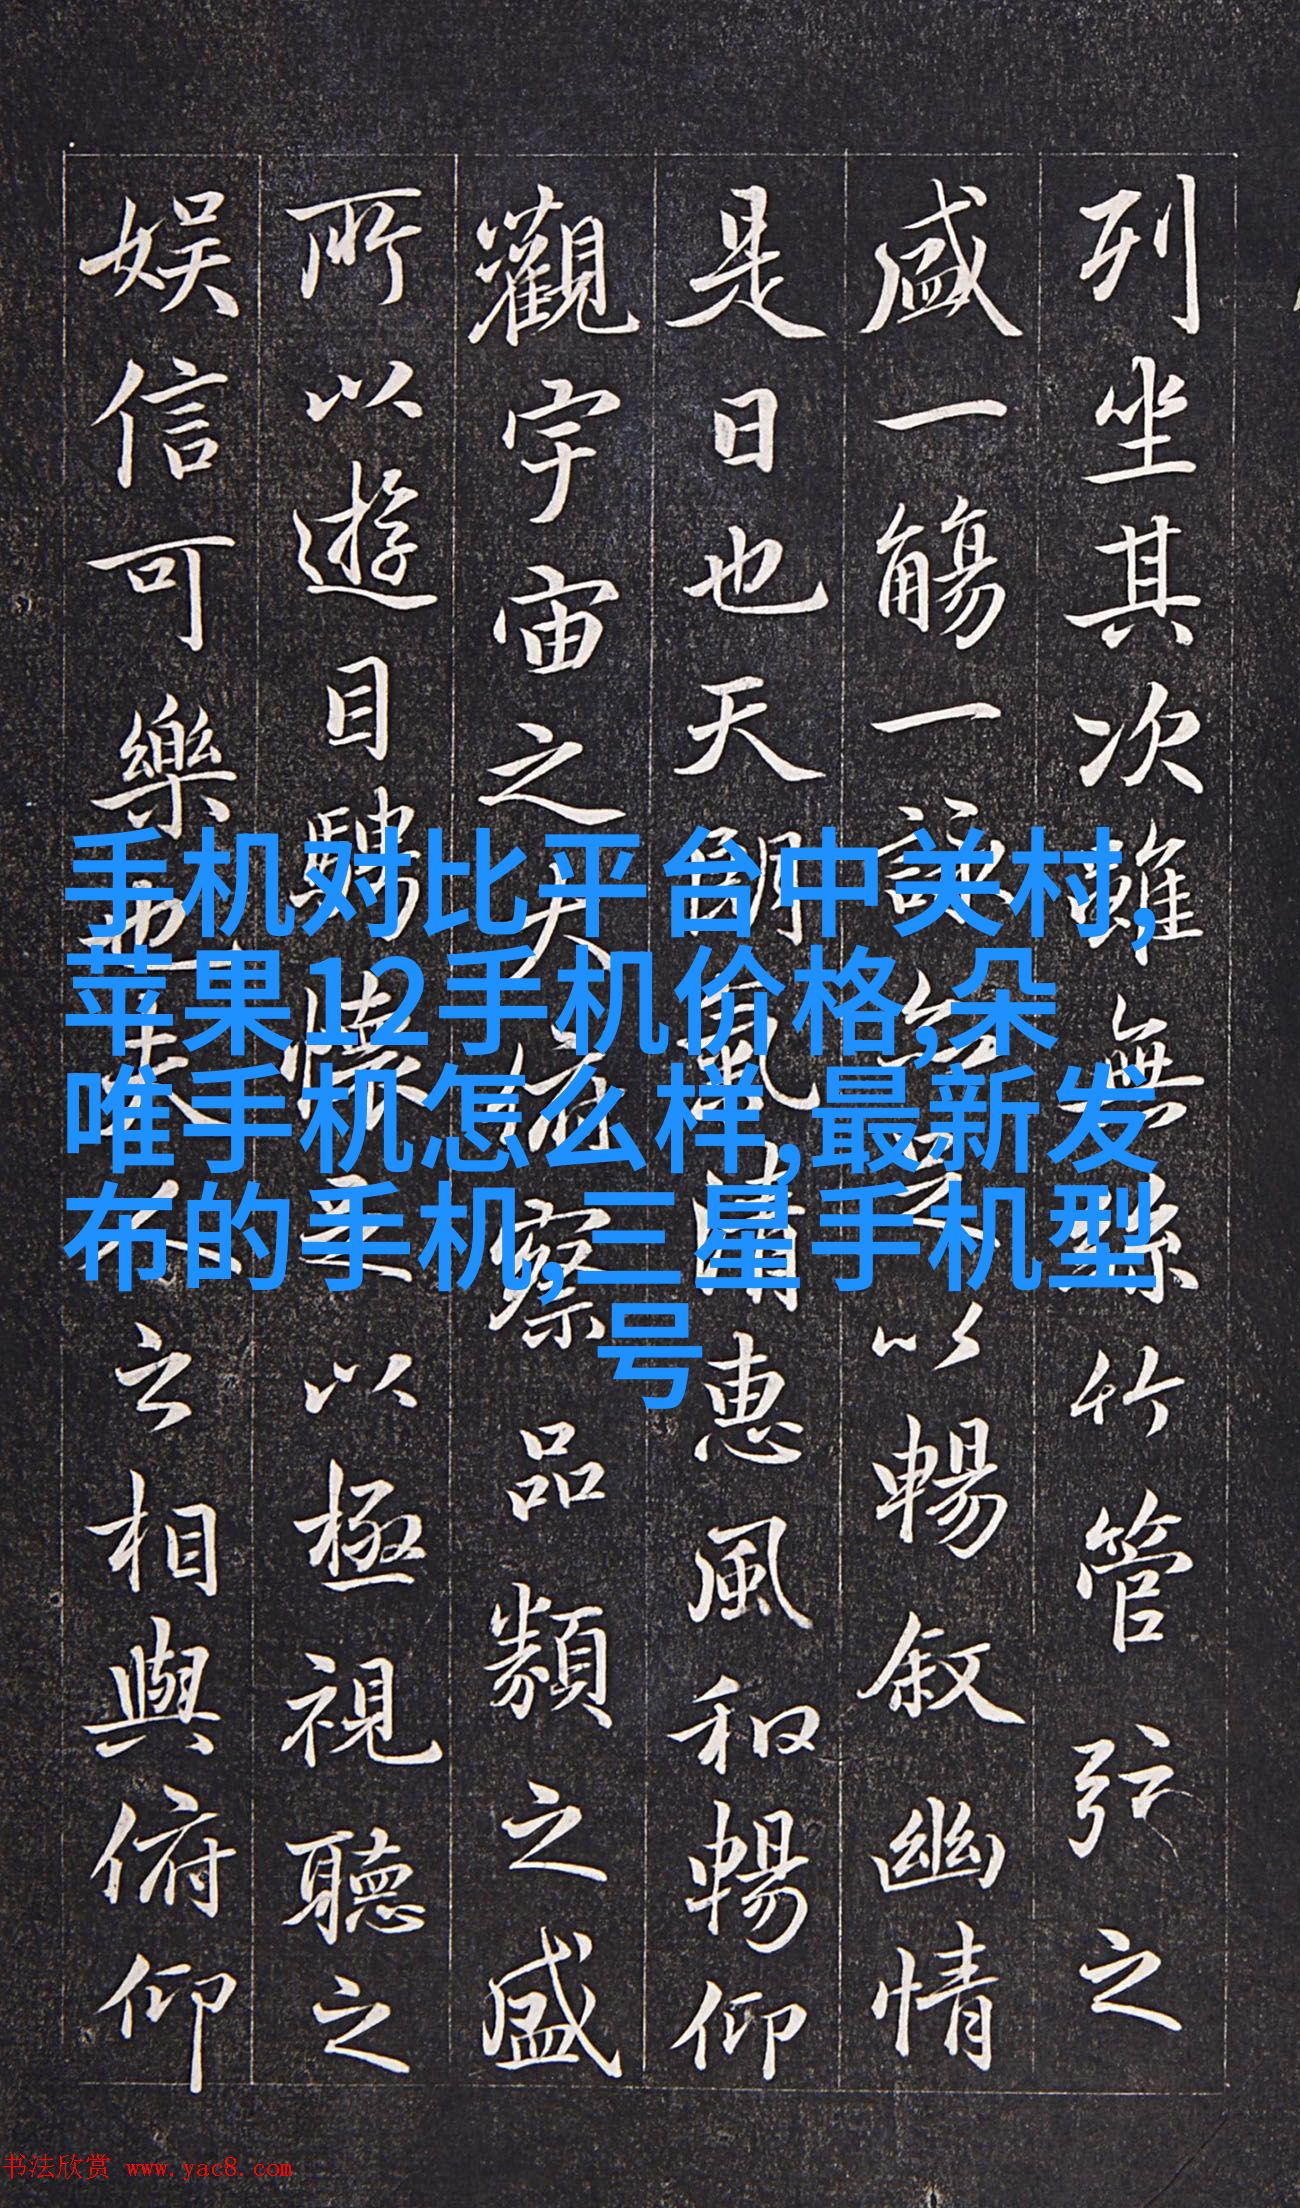 列坐其次雖無絲竹管弦之
盛一觴一詠亦足以暢敘幽情
是日也天朗氣清惠風和暢仰
觀宇宙之大俯察品類之盛
所以遊目騁懷足以極視聽之
娛信可樂也夫人之相與俯仰
手机对比平台中关村,
苹果12手机价格,朵
唯手机怎么样,最新发
布的手机,三星手机型
号
书法欣赏 www.yac8.com